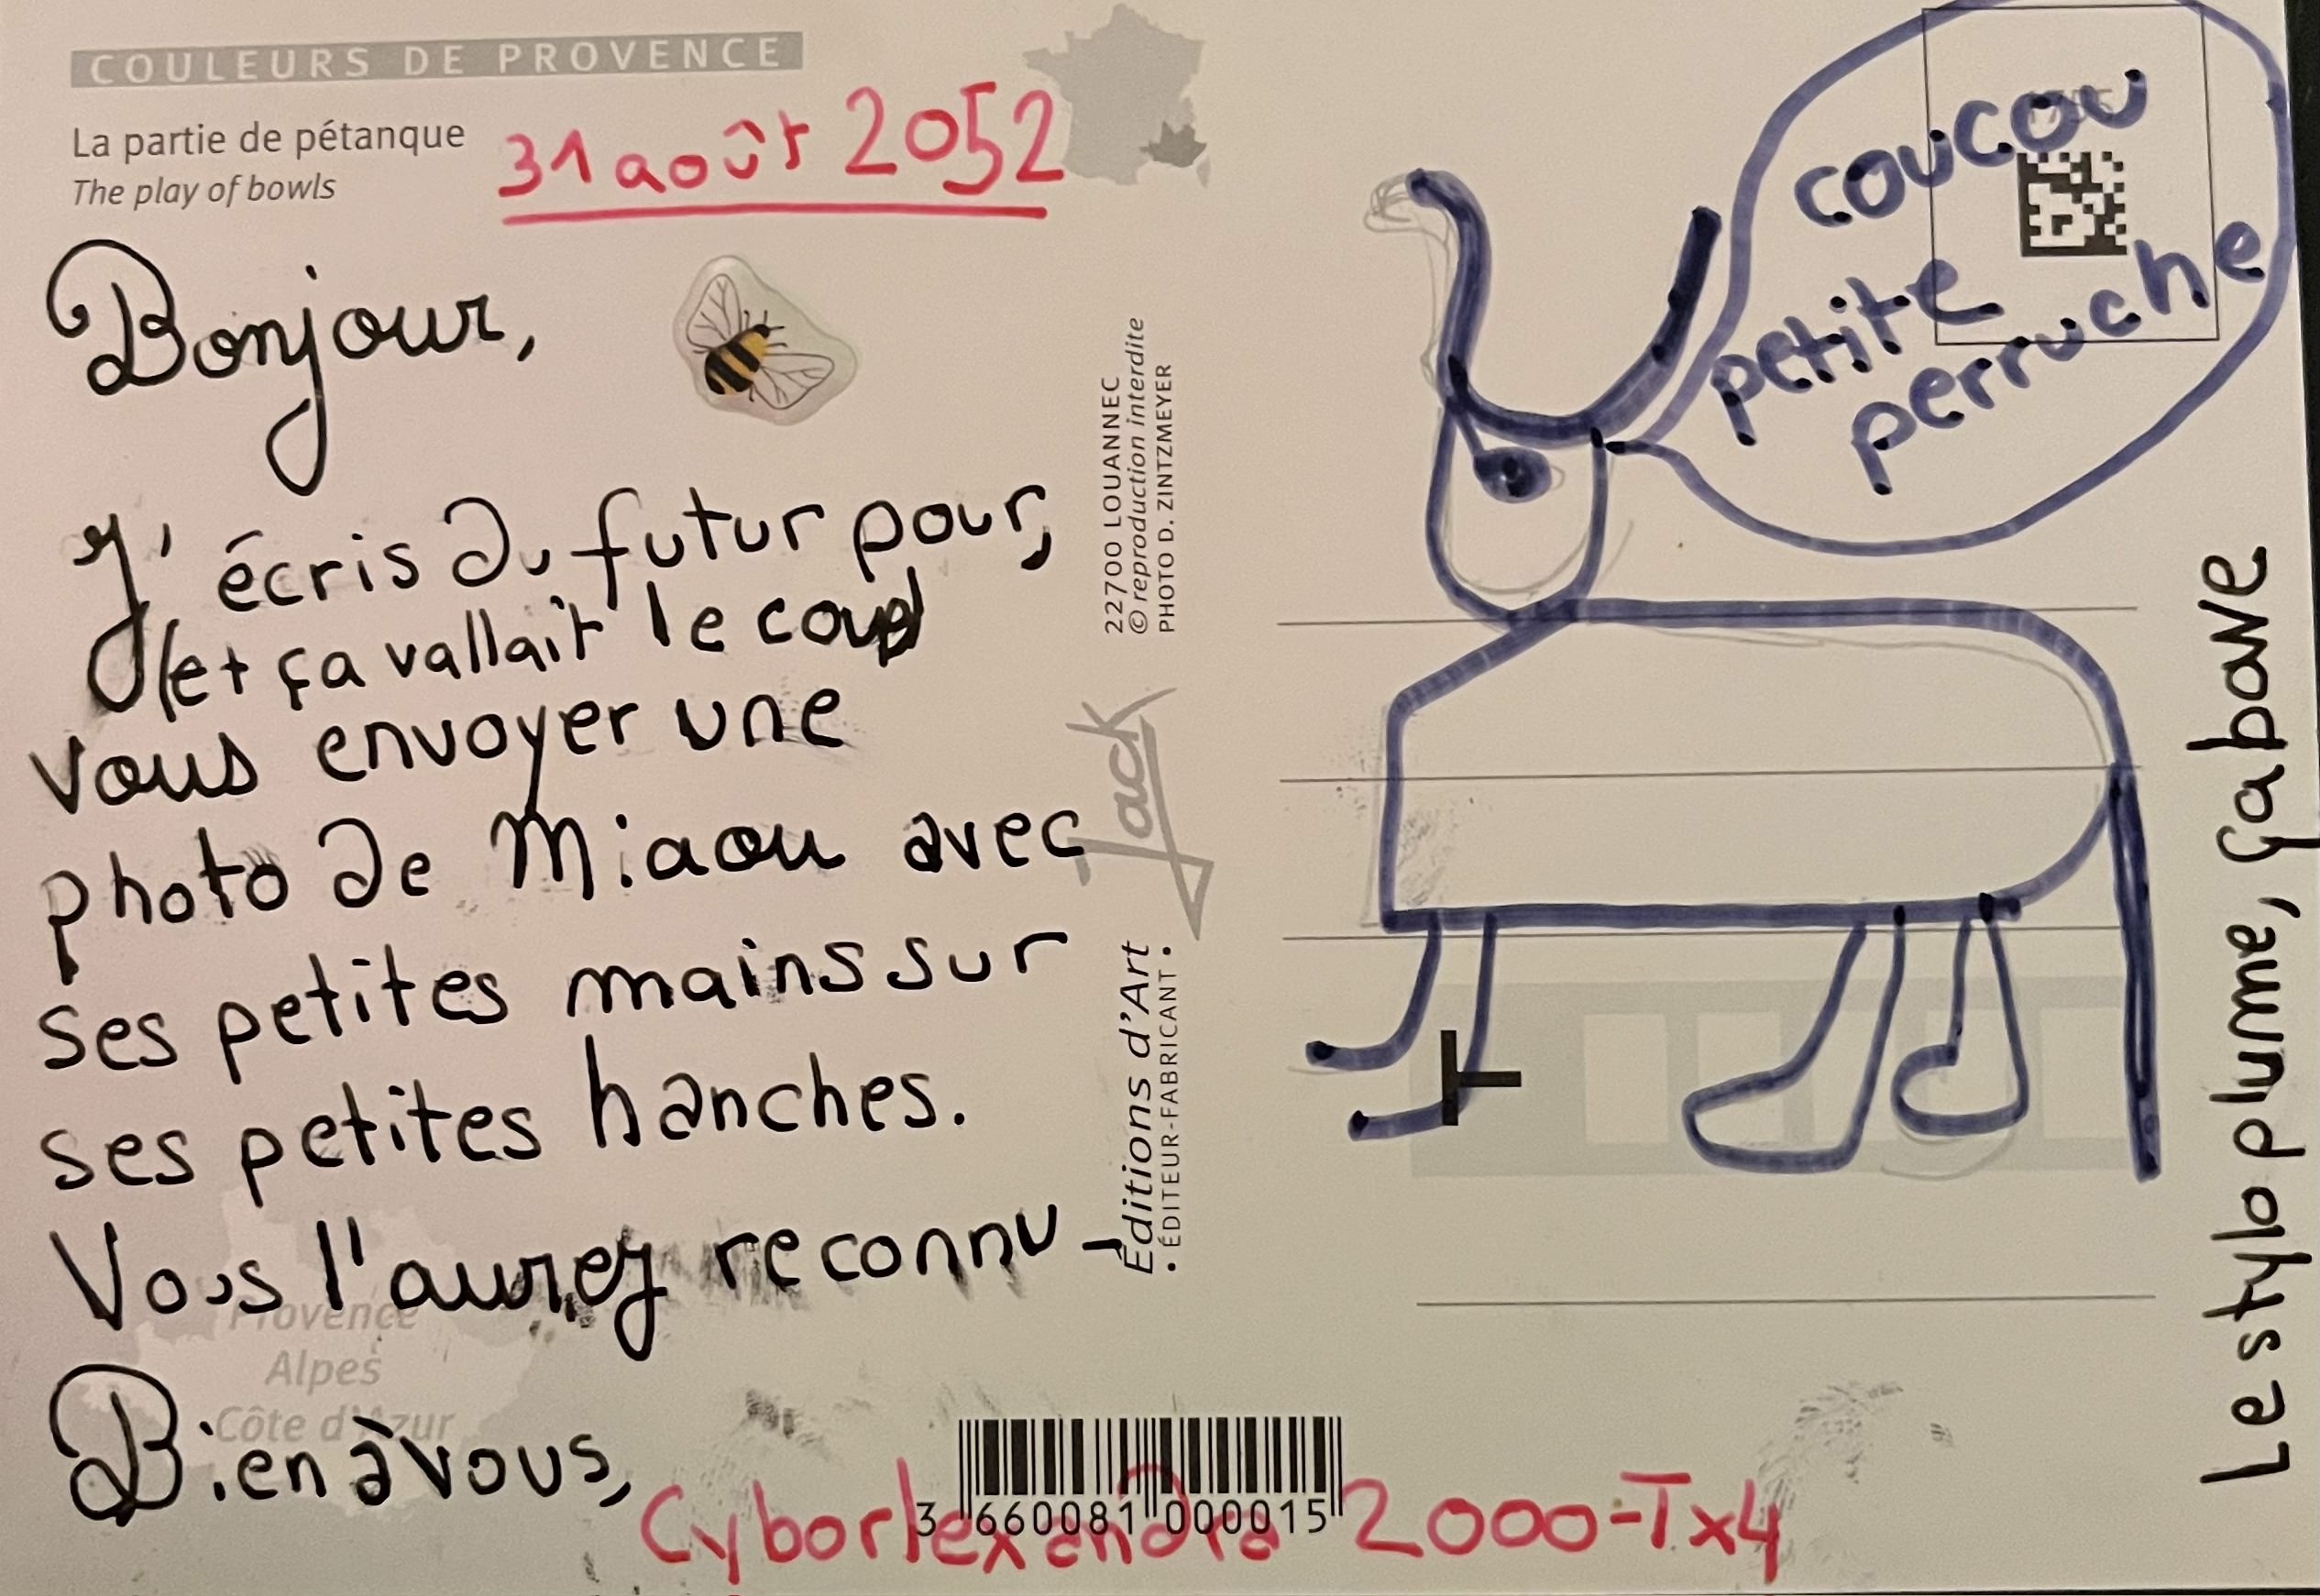 COULEURS DE PROVENCE
La partie de pétanque
The play of bowls
31 août 2052
Bonjour,
J'écris du futur pour,
(et ça vallait le coup)
vous envoyer une
photo de Miaou avec
ses petites mains sur
ses petites hanches.
Vous l'aurez reconnu-
Provence
Alpes
Côte d'Azur
Bien à vous,
Cyborlexandra 2000-Tx4
3 660081 000015
22700 LOUANNEC
© reproduction interdite
PHOTO D. ZINTZMEYER
Jack
Éditions d'Art
· ÉDITEUR-FABRICANT ·
coucou
petite
perruche
Le stylo plume, ça bave